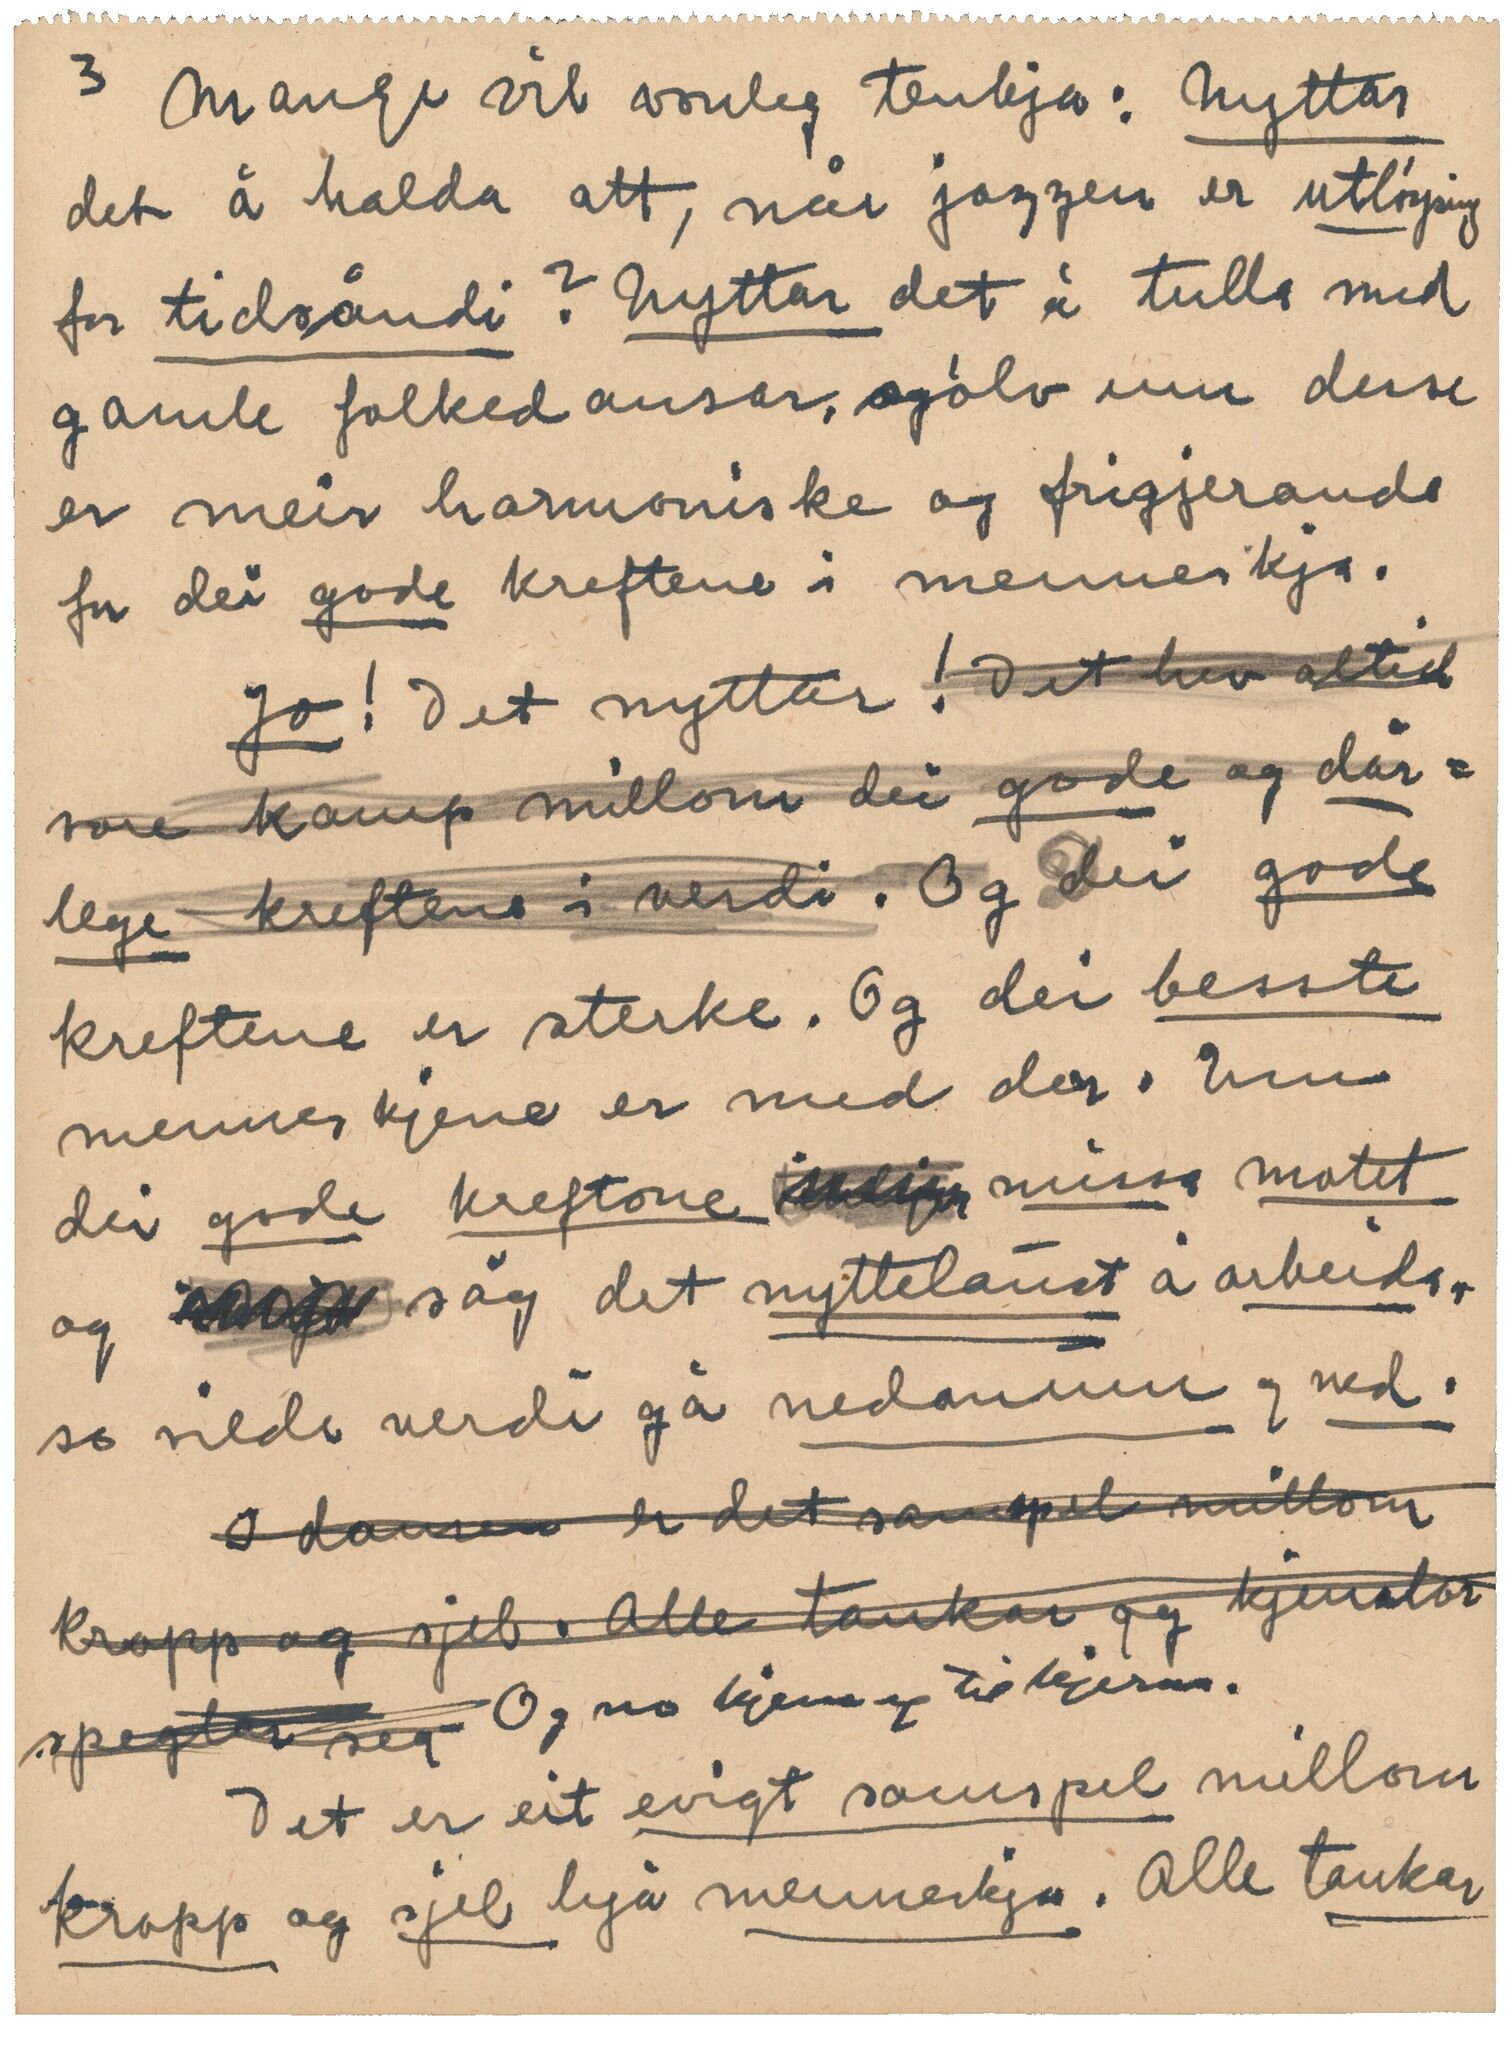 3 Mange vil vonleg tenkja: Nyttar
det å halda att, når jazzen er utløysing
for tidsåndi? Nyttar det å tulla med
gamle folkedansar, sjølv um desse
er meir harmoniske og frigjerande
for dei gode kreftene i menneskja.
Jo! Det nyttar! Det hev altid
vore kamp millom dei gode og dår=
lege kreftene i verdi. Og dei gode
kreftene er sterke. Og dei besste
menneskjene er med der. Um
dei gode kreftone missa motet
og såg det nyttelaust å arbeida,
so vilde verdi gå nedanum og ned.
I dansen er det samspel millom
kropp og sjel. Alle tankar og kjenslor
speglar seg Og no kjem eg til kjerna.
Det er eit evigt samspel millom
kropp og sjel hjå menneskja. Alle tankar